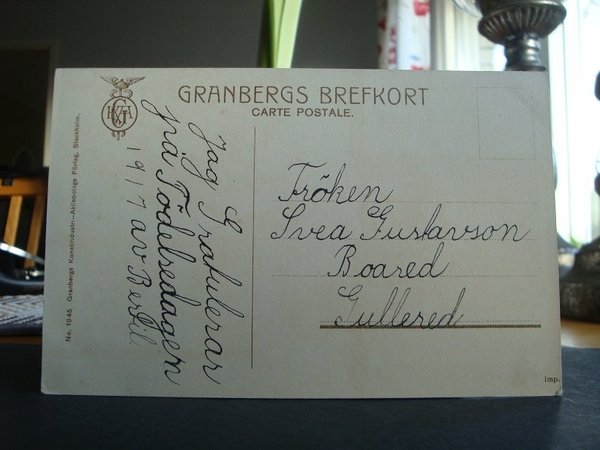 GRANBERGS BREFKORT
CARTE POSTALE.
No. 1945 Granbergs Konstindustri-Aktiebolags Förlag, Stockholm.
Jag Gratulerar
på Födelsedagen
1917 av Bertil.
Fröken
Svea Gustavson
Boared
Gullered
Imp.